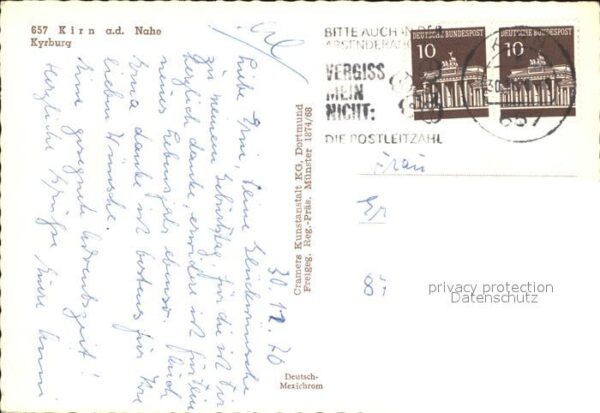 657 Kirn a.d. Nahe
Kyrburg
BITTE AUCH IN DER
ABSENDERANGABE
VERGISS
MEIN
NICHT:
DIE POSTLEITZAHL
DEUTSCHE BUNDESPOST
10
DEUTSCHE BUNDESPOST
10
657
Frau
30.11.70
Liebe Erni, Deine Glückwünsche
zu meinem Geburtstag, für die ich Dir
herzlich danke, erwidere ich für Dein
neues Lebensjahr ebenso. Auch
Erna danke ich bestens für Ihre
lieben Wünsche.
Eine gesegnete Adventszeit!
Herzliche Grüße Eure
Cramers Kunstanstalt KG, Dortmund
Freigeg. Reg.-Präs. Münster 1874/68
Deutsch-
Mexichrom
privacy protection
Datenschutz